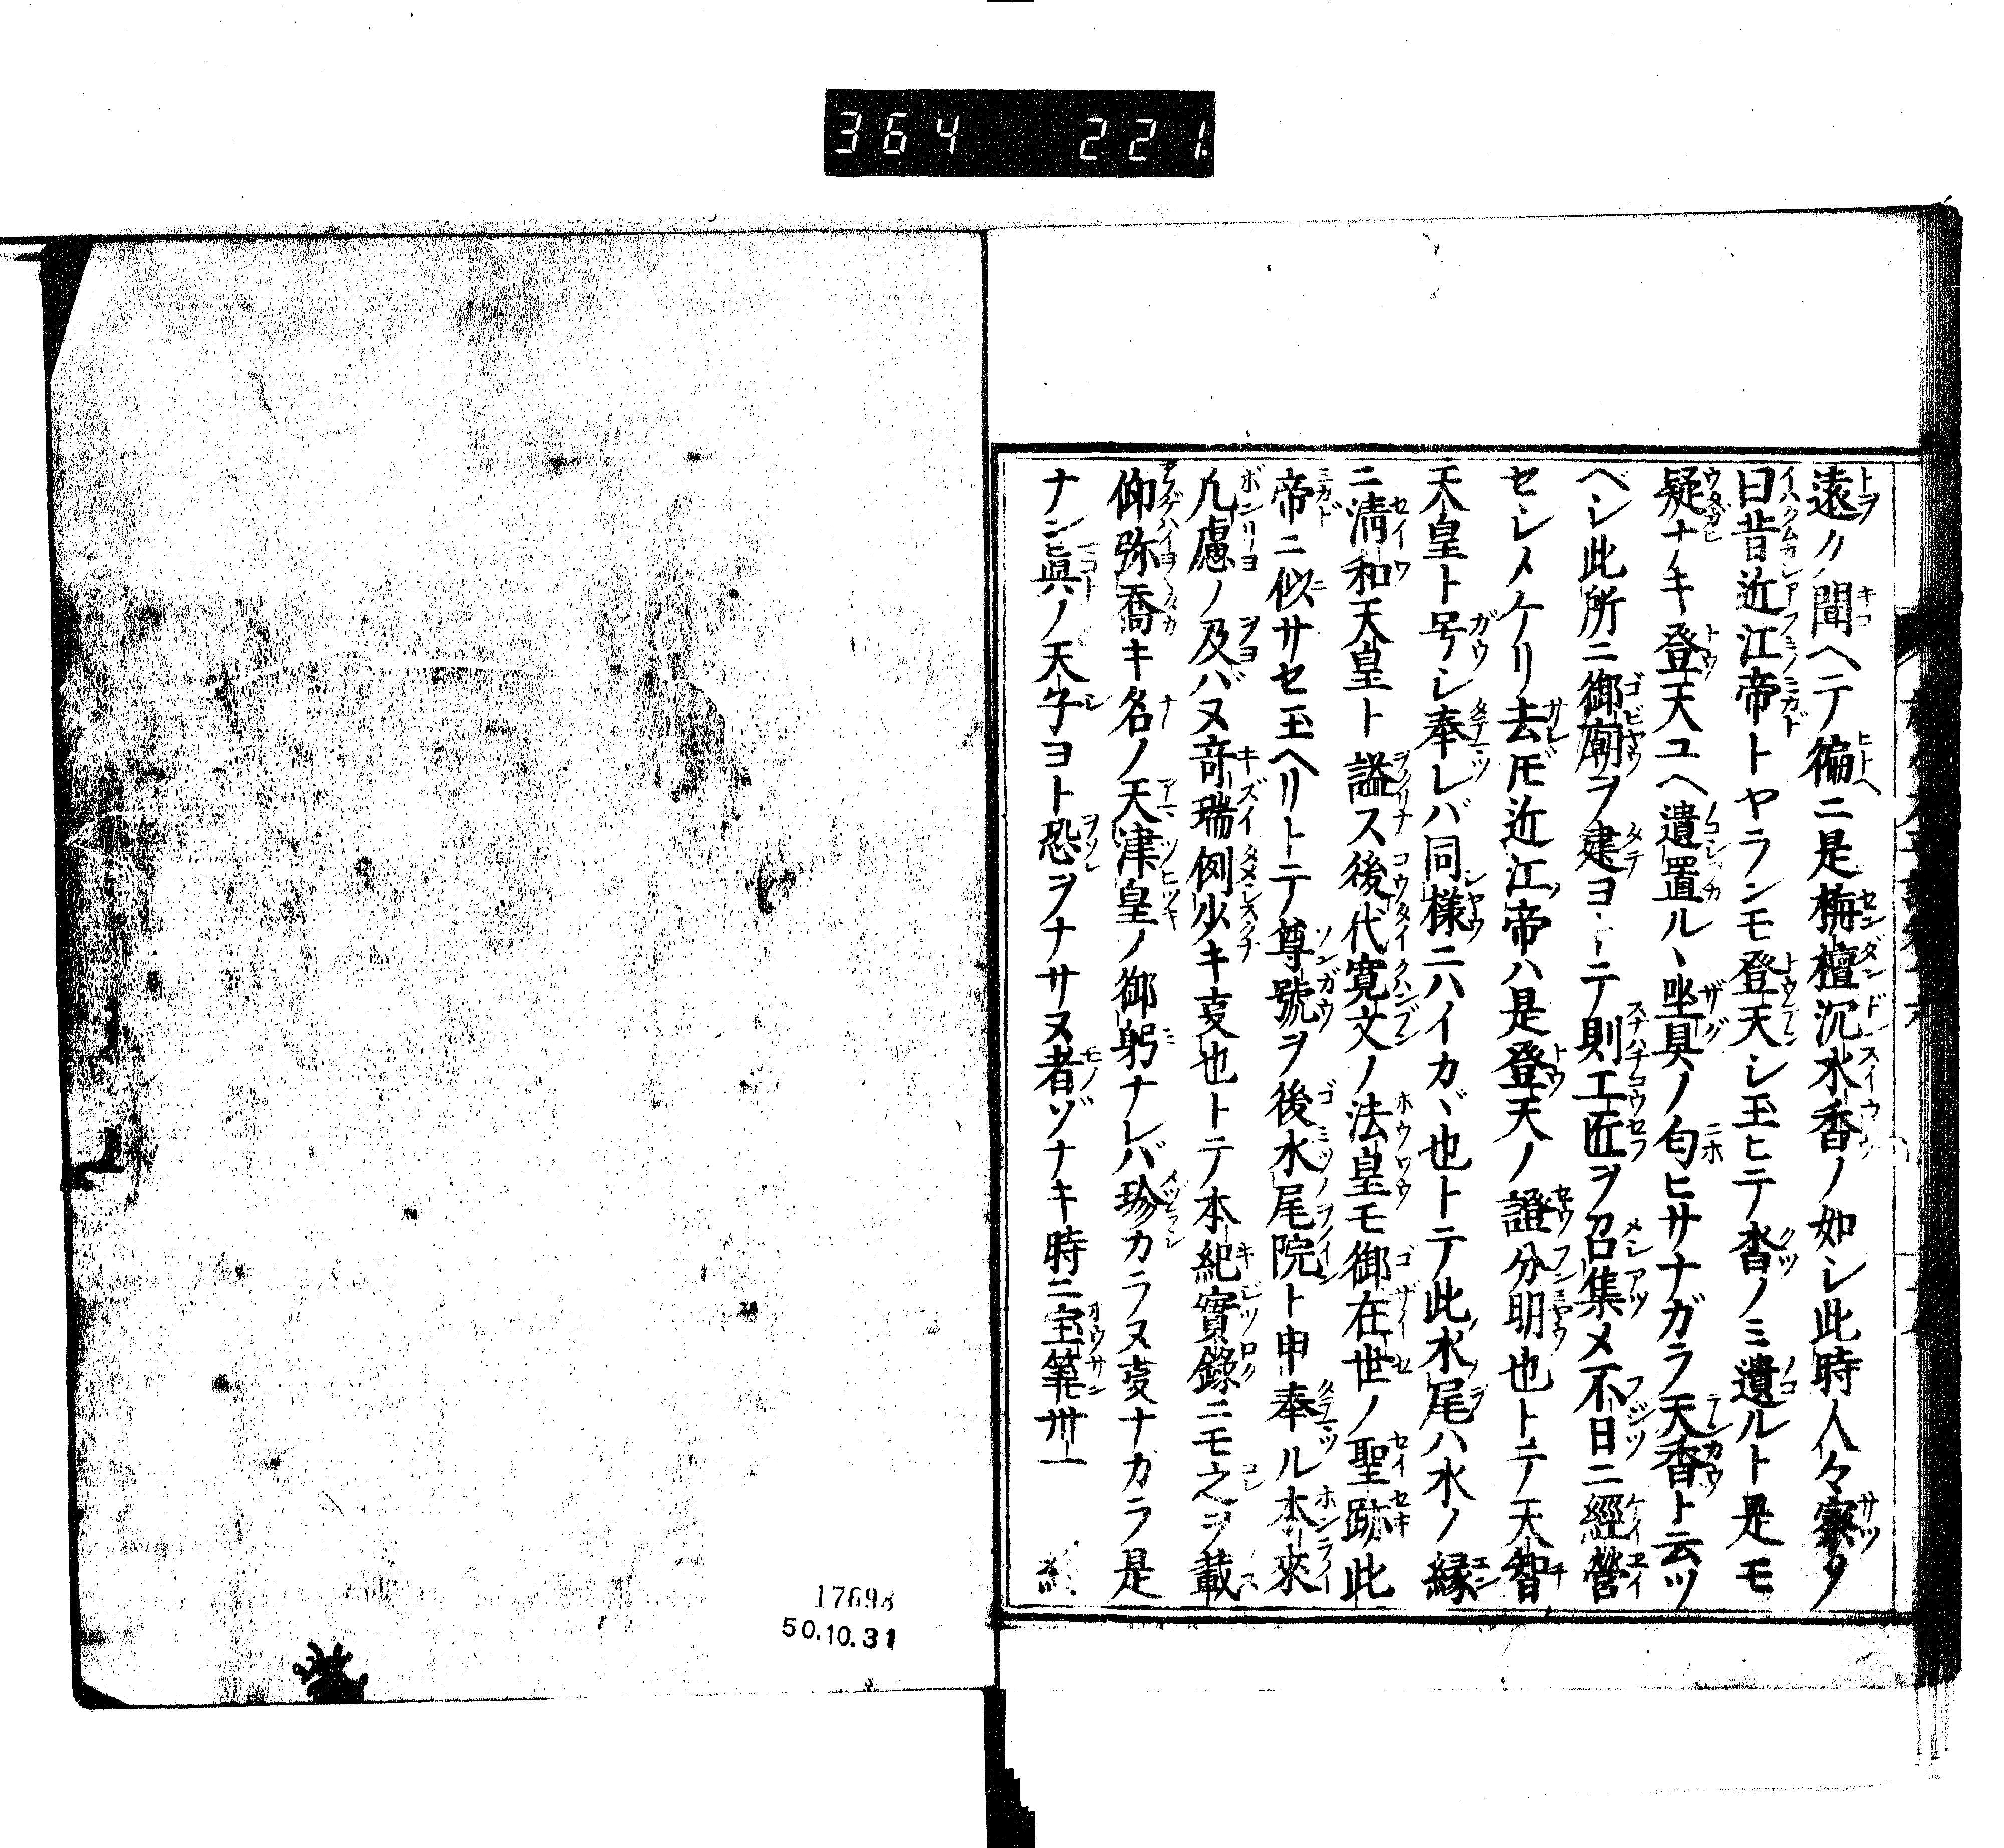 364 221.
遠ク聞ヘテ徧ニ是栴檀沉水香ノ如シ此時人々察ソ
曰昔近江帝トヤランモ登天シ玉ヒテ沓ノミ遺ルト是モ
疑ナキ登天ユヘ遺置ル、坐具ノ匂ヒサナガラ天香ト云ツ
ベシ此所ニ御廟ヲ建ヨトテ則工匠ヲ召集メ不日ニ經營
セシメケリ去ドモ近江帝ハ是登天ノ證分明也トテ天智
天皇ト号シ奉レバ同様ニハイカヾ也トテ此水尾ハ水ノ縁
ニ清和天皇ト謚ス後代寛文ノ法皇モ御在世ノ聖跡此
帝ニ似サセ玉ヘリトテ尊號ヲ後水尾院ト申奉ル本來
凡慮ノ及バヌ竒瑞例少キ叓也トテ本紀實錄ニモ之ヲ載
仰弥喬キ名ノ天津皇ノ御躬ナレバ珍カラヌ叓ナカラ是
ナン眞ノ天子ヨト恐ヲナサヌ者ゾナキ時ニ宝筭卅一
終
17698
50.10.31